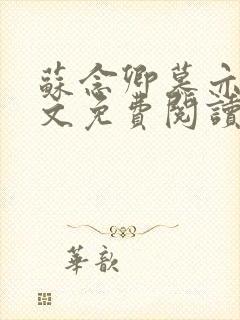 蘇念卿墓亦
文免費閱讀
華歆